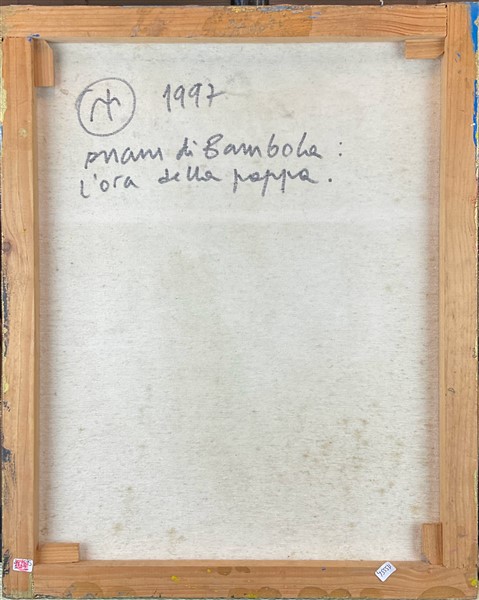 1997
di Bambola:
l'ora della pappa.